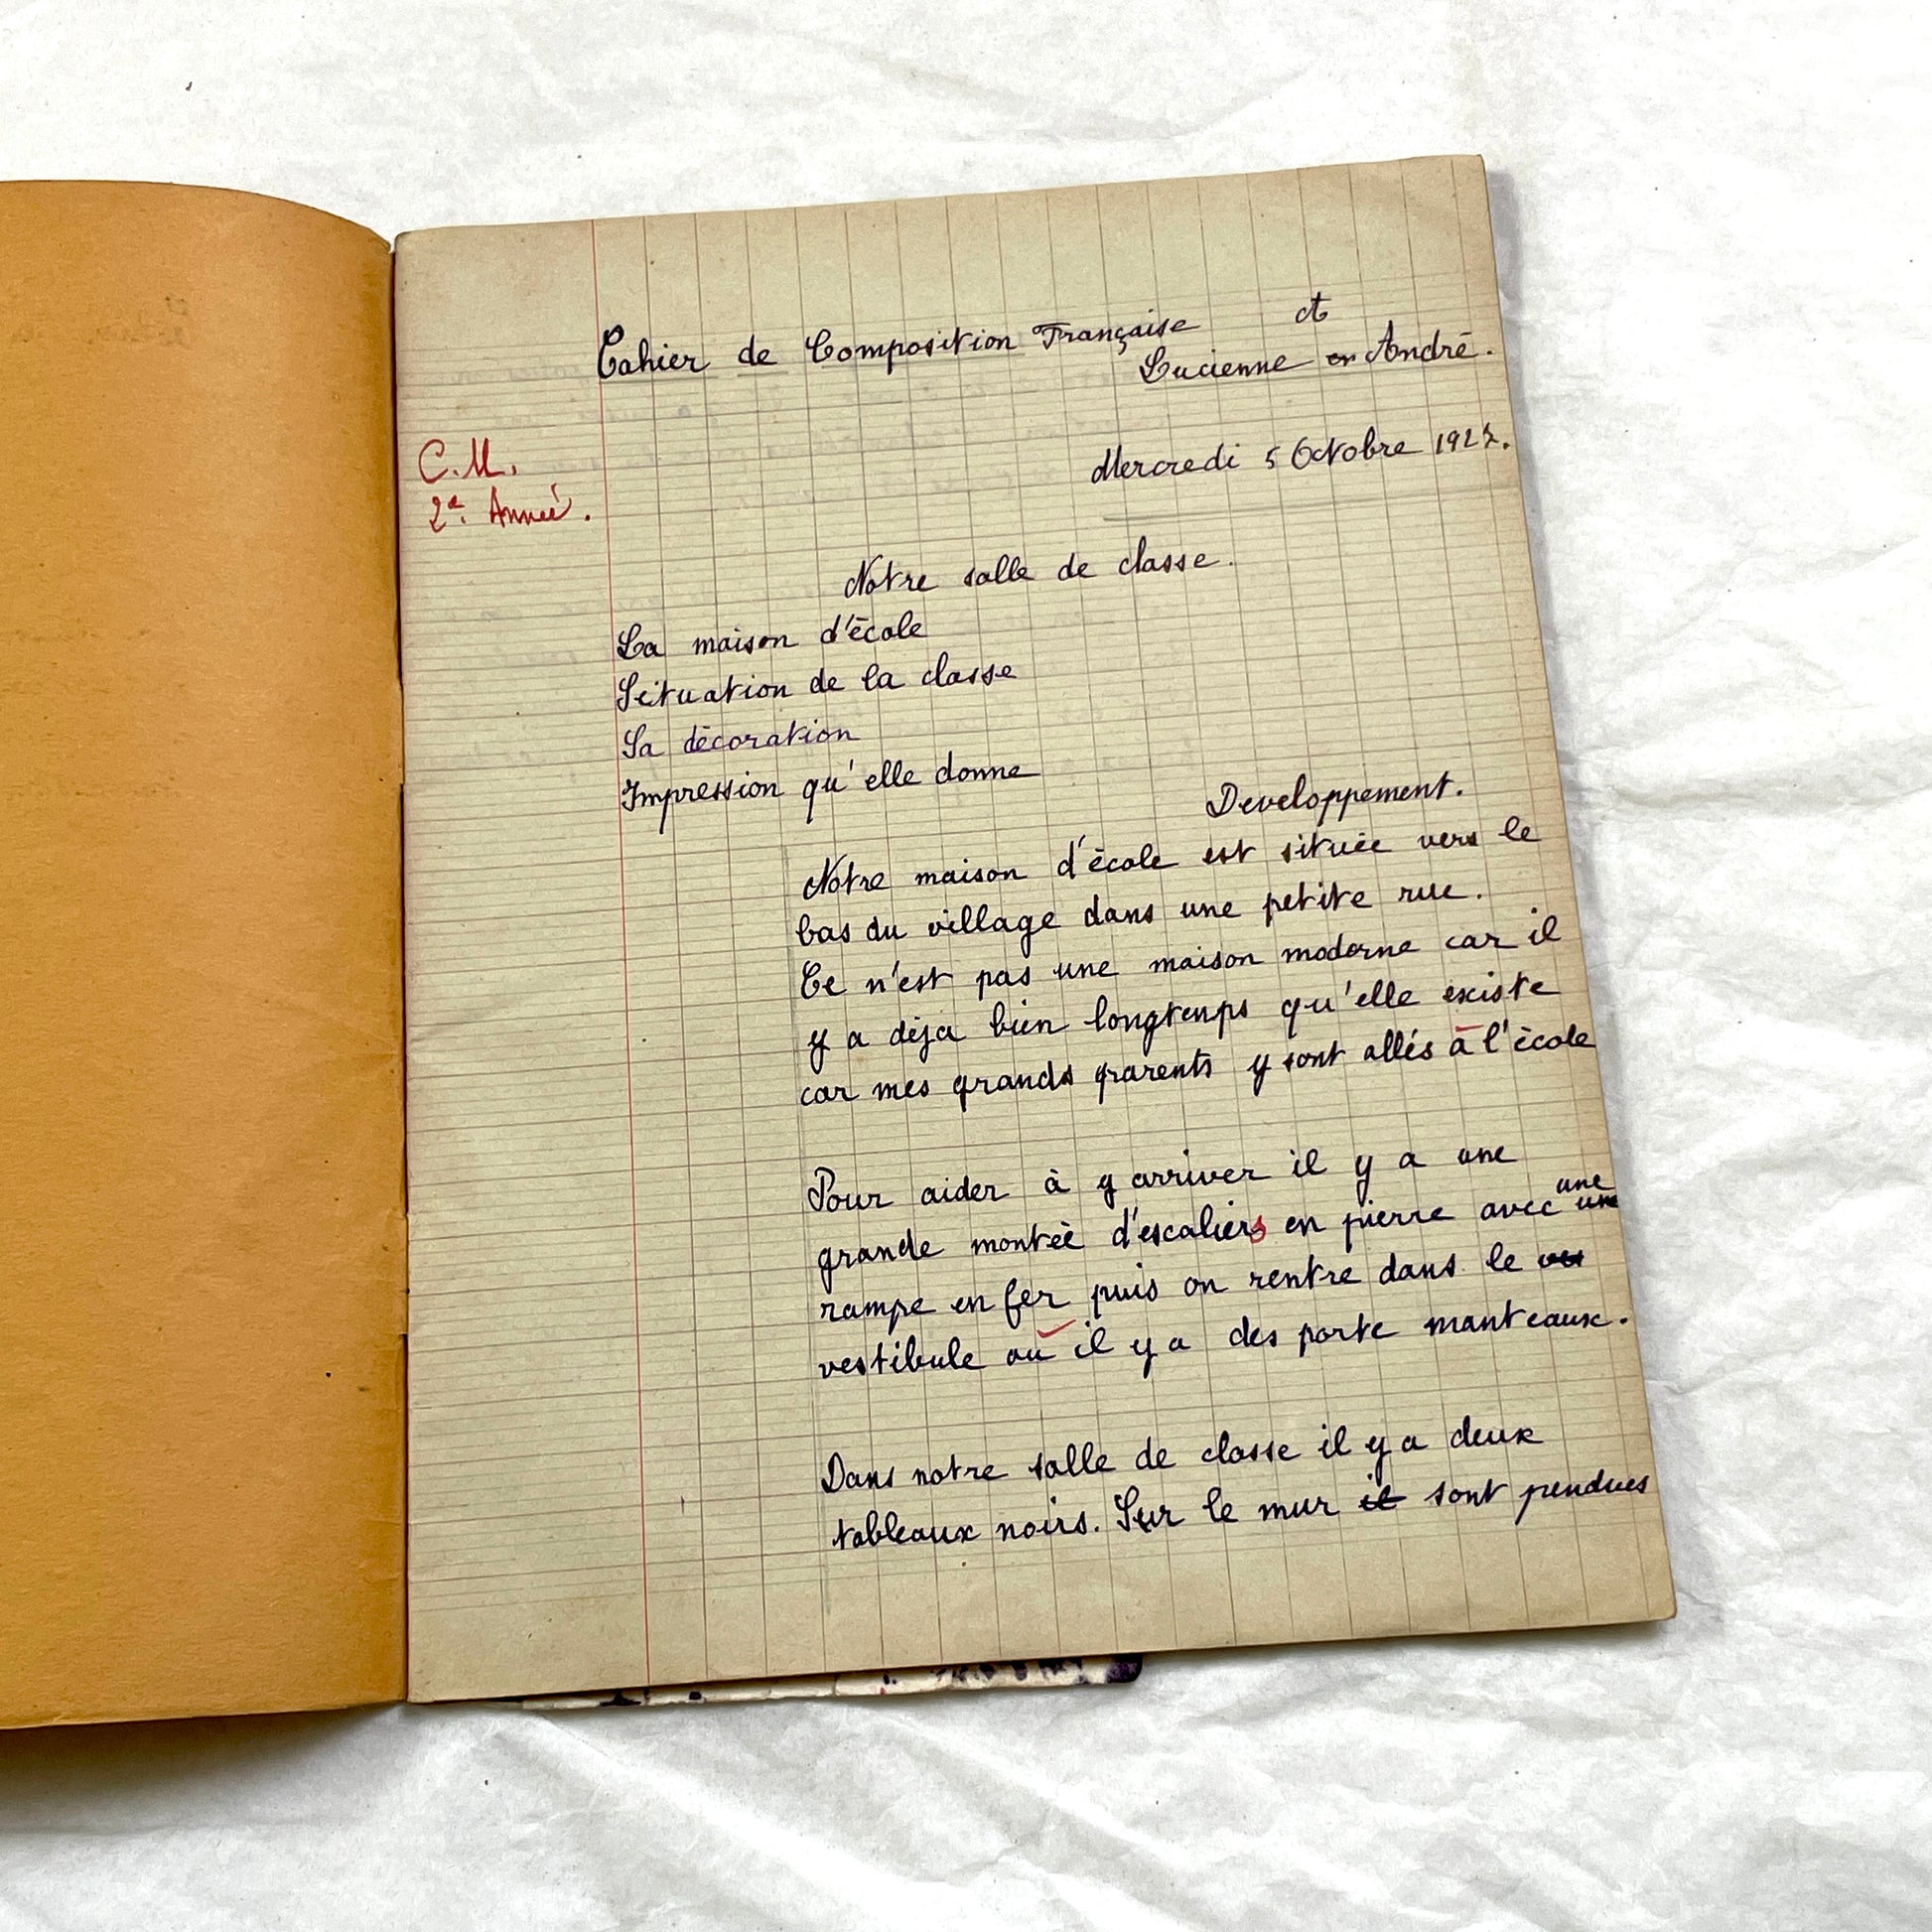 Cahier de Composition Française
et
Lucienne en André.
C.M.
2e. Année.
Mercredi 5 Octobre 1927.
Notre salle de classe.
La maison d'école
Situation de la classe
Sa décoration
Impression qu'elle donne
Developpement.
Notre maison d'école est située vers le
bas du village dans une petite rue.
Ce n'est pas une maison moderne car il
y a déja bien longtemps qu'elle existe
car mes grands parents y sont allés à l'école
Pour aider à y arriver il y a une
une
grande montée d'escaliers en pierre avec une
rampe en fer puis on rentre dans le ves
vestibule où il y a des porte manteaux.
Dans notre salle de classe il y a deux
tableaux noirs. Sur le mur il sont pendues